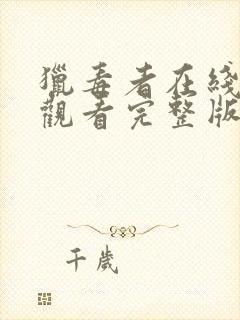 獵毒者在綫
觀看完整版
千歲